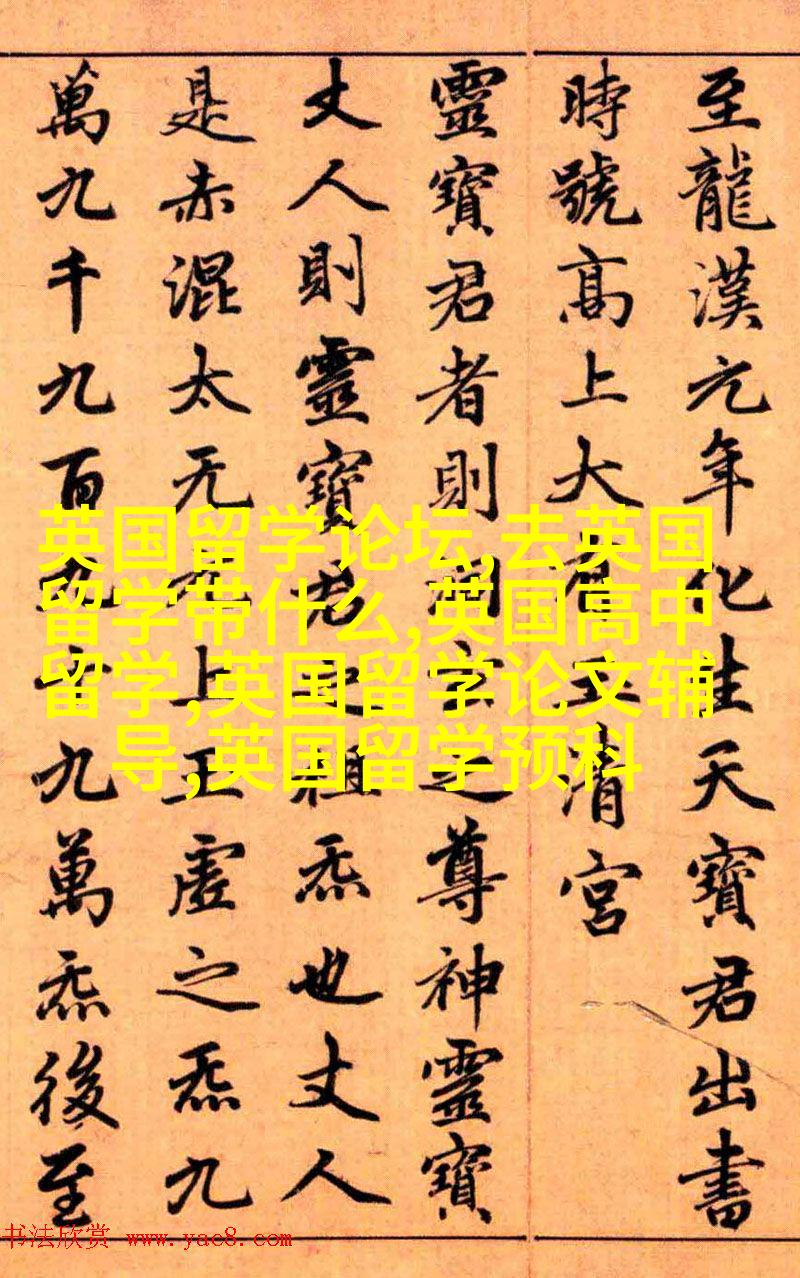 至龍漢元年化生天寶君出書
時號高上大有玉清宮
靈寶君者則洞玄之尊神靈寶
丈人則靈寶君之祖炁也丈人
是赤混太无元上玉虛之炁九
萬九千九百九十九萬炁後至
英国留学论坛,去英国
留学带什么,英国高中
留学,英国留学论文辅
导,英国留学预科
书法欣赏 www.yac8.com